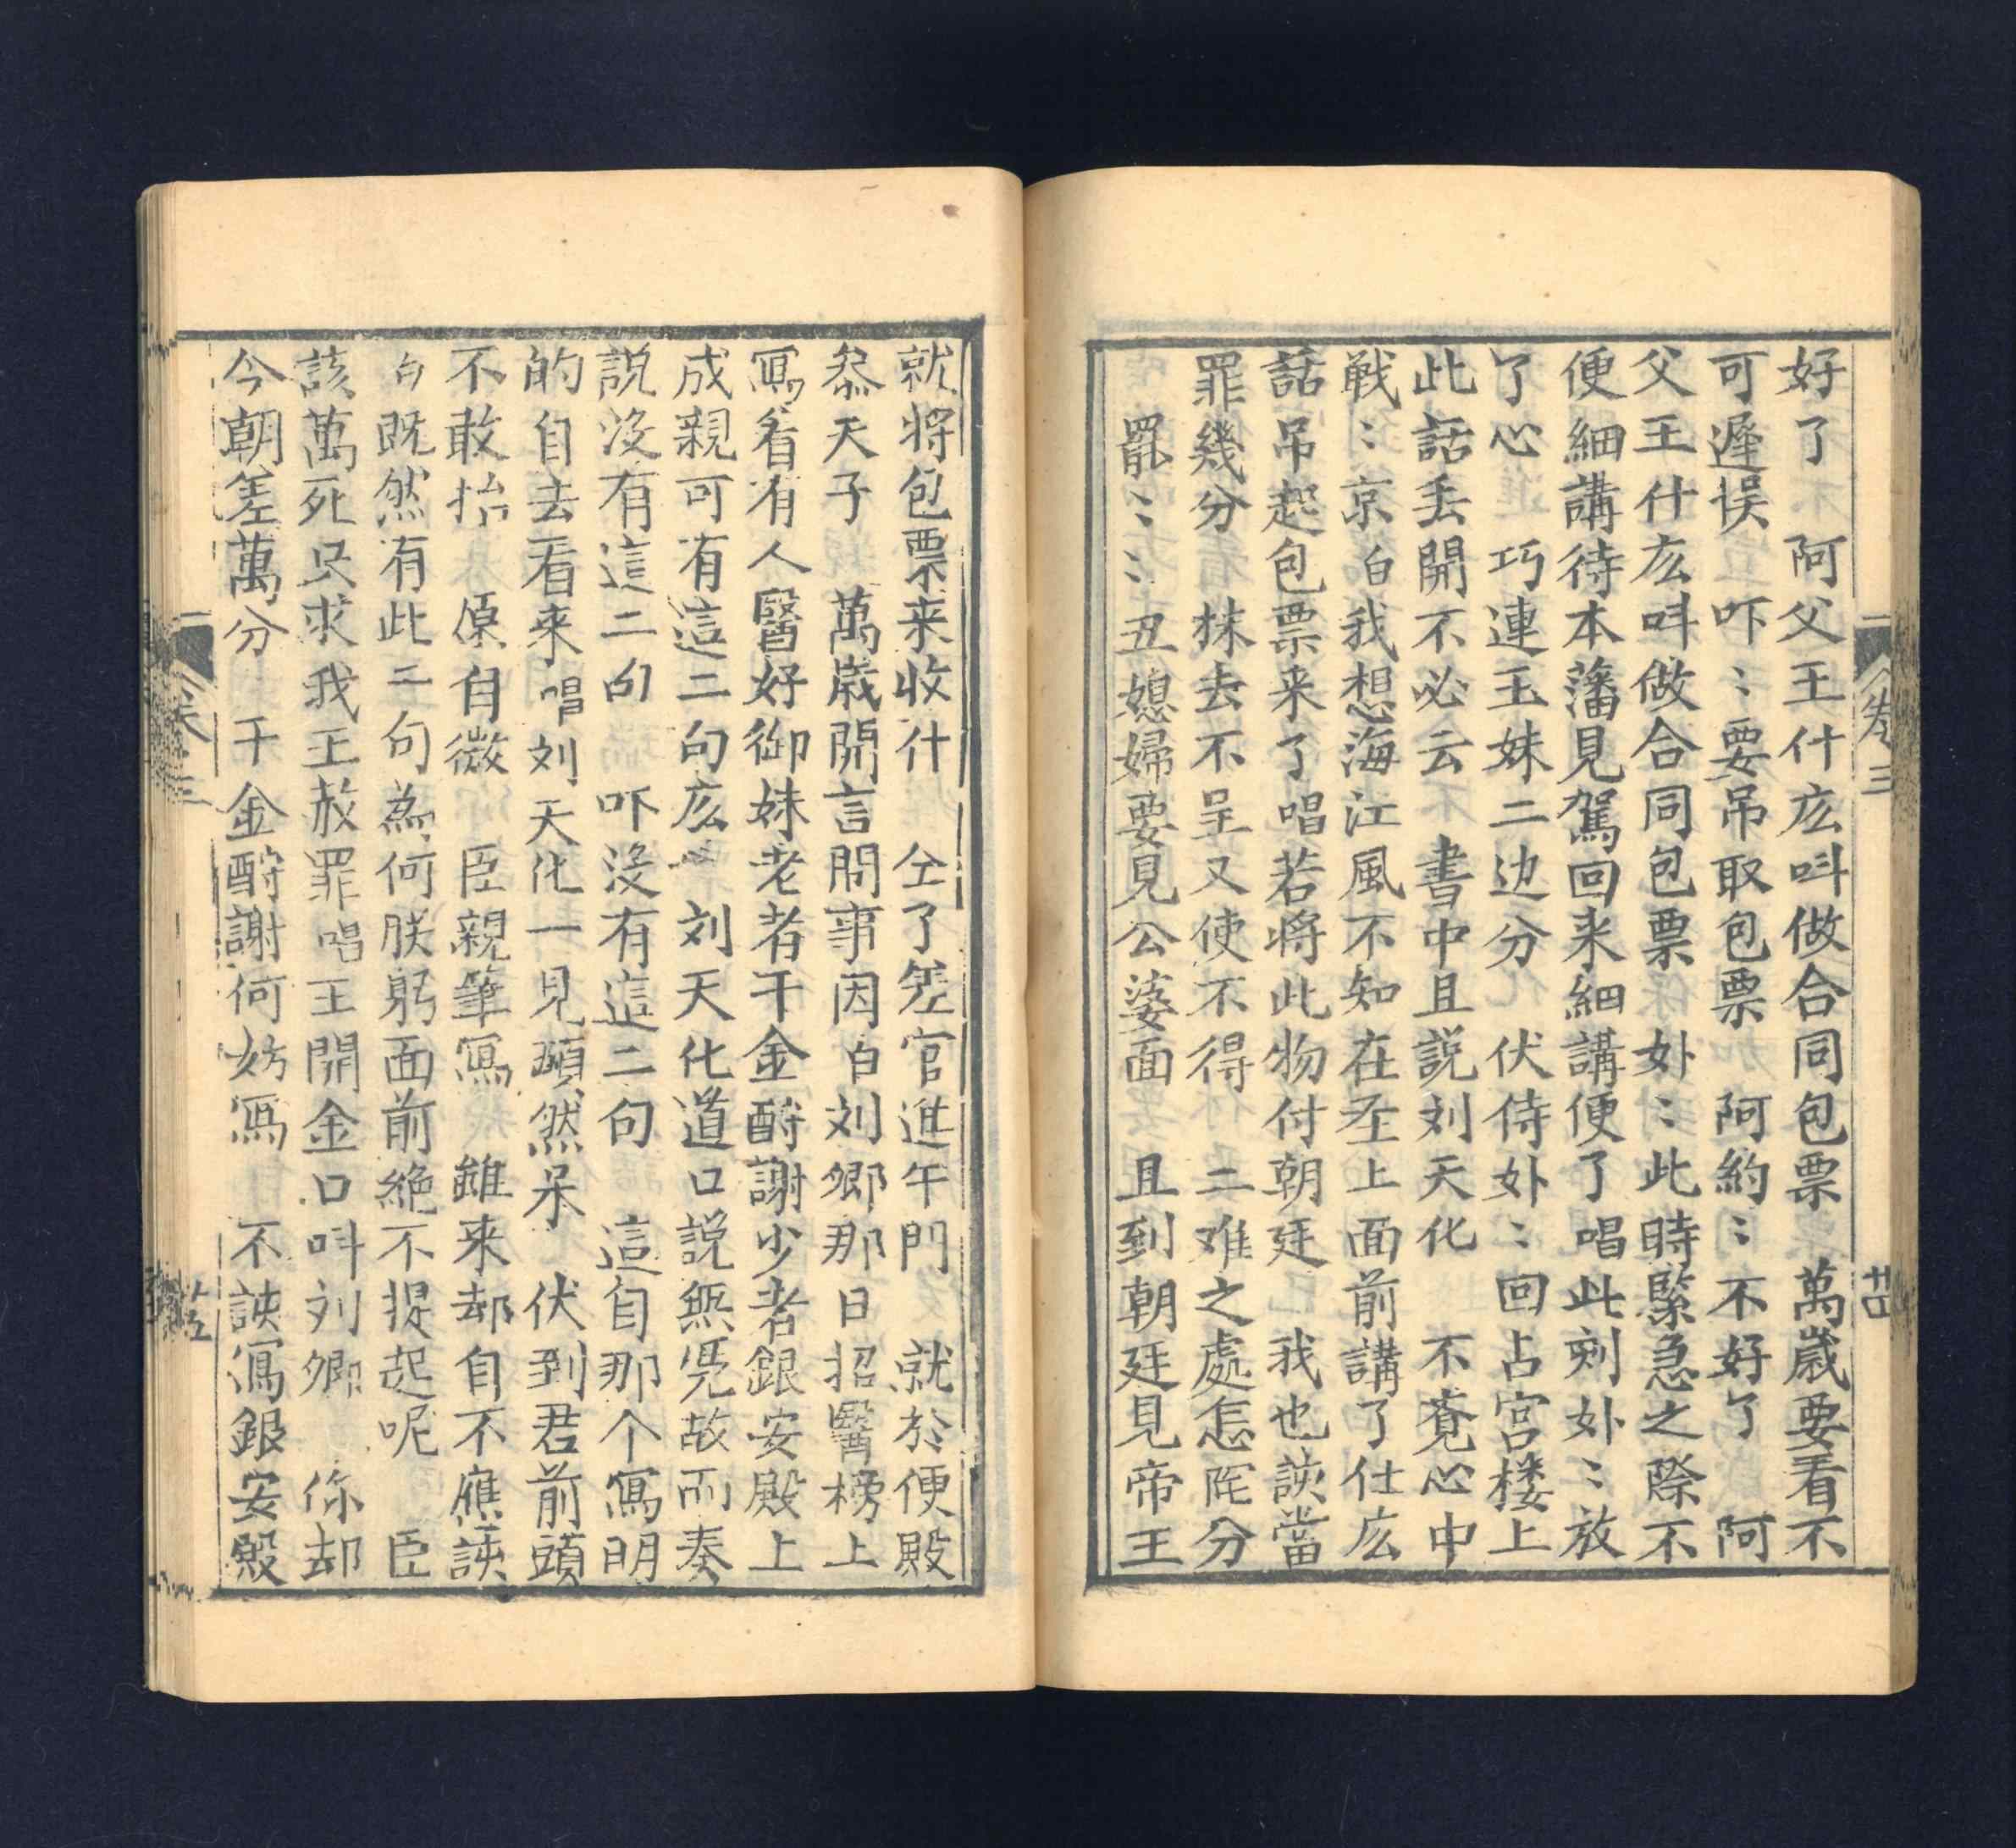 好了　阿父王什庅呌做合同包票　萬歲要看不
可遲悮　吓〻要吊取包票　阿約〻不好了　阿
父王什庅呌做合同包票　妤〻此時緊急之際不
便細講待本藩見駕回来細講便了唱此刻妤〻放
了心　巧連王妹二边分　伏侍妤〻回占宫楼上
此話丢開不必云　書中且説刘天化　不覔心中
戦〻京白我想海江風不知在圣上面前講了仕庅
話吊起包票来了唱若将此物付朝廷　我也該當
罪幾分　抹去不呈又使不得　二难之處怎陀分
罷〻〻丑媳婦要見公婆面　且到朝廷見帝王
卷三　廿四
就将包票来收什　仝了差官進午門　就於便殿
叅天子　萬歲開言問事因白刘卿那日招醫榜上
寫着有人醫好御妹老者千金酧謝少者銀安殿上
成親可有這二句庅　刘天化道口説無凭故而奏
説没有這二句　吓没有這二句　這自那个寫明
的自去看来唱刘天化一見頭然呆　伏到君前頭
不敢抬　原自微　臣親筆寫　雖来却自不應該
白既然有此二句為何朕躬面前絶不提起呢　臣
該萬死只求我王赦罪唱王開金口呌刘卿　你却
今朝差萬分　千金酧謝何妨寫　不該寫銀安殿
卷三　廿五